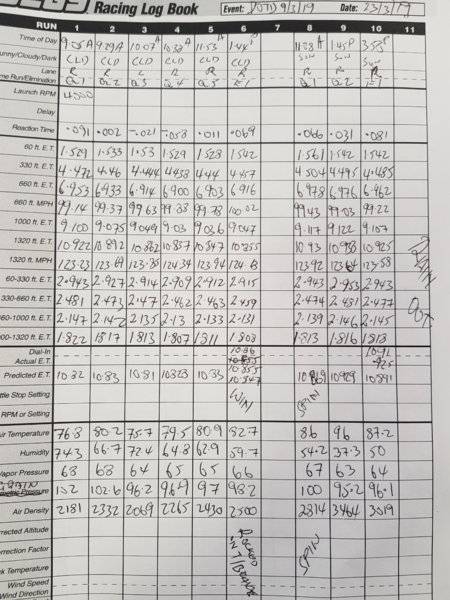 Racing Log Book Event: 9/3/19 Date: 23/3/19
RUN 1 2 3 4 5 6 7 8 9 10 11
Time of Day 9.29A 10.07A 10.38A 11.53
unny/Cloudy/Dark CLD CLD CLD CLD CLD CLD SUN SUN SUN
Lane R R L R R R R R
me Run/Elimination Q1 Q2 Q3 Q4 Q5 E1 Q1 Q2 E1
Launch RPM 4500
Delay
Reaction Time .091 .002 -.021 -.058 .011 .069 .066 .031 .081
60 ft. E.T. 1.529 1.533 1.53 1.529 1.528 1.542 1.561 1.542 1.542
330 ft. E.T. 4.472 4.46 4.444 4.438 4.44 4.457 4.504 4.495 4.485
660 ft. E.T. 6.953 6.933 6.914 6.900 6.903 6.916 6.978 6.976 6.962
660 ft. MPH 99.14 99.37 99.63 99.88 99.78 100.02 99.43 99.03 99.22
1000 ft. E.T. 9.100 9.075 9.049 9.03 9.036 9.047 9.117 9.122 9.107
1320 ft. E.T. 10.922 10.892 10.862 10.837 10.847 10.855 10.93 10.938 10.925
1320 ft. MPH 123.23 123.69 123.85 124.34 123.94 123.92 123.64 123.58
60-330 ft. E.T. 2.943 2.927 2.914 2.909 2.912 2.915 2.943 2.953 2.943
330-660 ft. E.T. 2.481 2.473 2.47 2.462 2.463 2.459 2.474 2.481 2.477
660-1000 ft. E.T. 2.147 2.142 2.135 2.13 2.133 2.131 2.139 2.146 2.145
000-1320 ft. E.T. 1.822 1.817 1.813 1.807 1.811 1.808 1.813 1.816 1.818
Dial-In 10.86 10.91
Actual E.T. 10.855 .925
Predicted E.T. 10.82 10.83 10.81 10.823 10.83 10.847 10.869 10.929 10.891
ttle Stop Setting WIN SPIN
RPM or Setting
Air Temperature 76.3 80.2 75.7 79.5 80.9 82.7 86 96 87.2
Humidity 74.3 66.7 72.4 64.8 62.9 59.7 54.2 37.3 50
Vapor Pressure 68 68 64 65 65 66 67 63 64
Pressure 102 102.6 96.2 96.9 97 98.2 100 95.2 96.1
Air Density 2181 2332 2069 2265 2430 2500 2814 3464 3019
rrected Altitude
rrection Factor
k Temperature SPIN
Wind Speed
Wind Direction